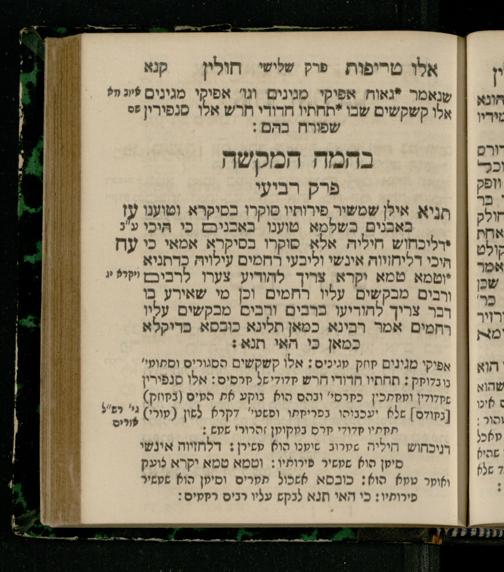 אלו טריפות פרק שלישי חולין קנא
שנאמר *גאוה אפיקי מגינים וגו' אפיקי מגינים איוב מא
אלו קשקשים שבו *תחתיו חדודי חרש אלו סנפירין שם
שפורח בהם:
בהמה המקשה
פרק רביעי
תניא אילן שמשיר פירותיו סוקרו בסיקרא וטוענו עז
באבנים בשלמא טוענו באבנים כי היכי ע"ב
*דליכחוש חיליה אלא סוקרו בסיקרא אמאי כי עח
היכי דליחזויה אינשי וליבעי רחמים עילויה כדתניא
*וטמא טמא יקרא צריך להודיע צערו לרבים ויקרא יג
ורבים מבקשים עליו רחמים וכן מי שאירע בו
דבר צריך להודיעו ברבים ורבים מבקשים עליו
רחמים אמר רבינא כמאן תלינא כובסא בדיקלא
כמאן כי האי תנא:
אפיקי מגינים חוזק מגינים: אלו קשקשים הסגורים וסתומי'
בו בדוחק: תחתיו חדודי חרש חדודי של חרסים: אלו סנפירין
שחדודין ומחתכין כחרסי' ובהם הוא בוקע את המים (בחוזק)
[בקודם] שלא יעכבוהו בפריחתו ופשטי' דקרא לשון (מורי) גי' רש"ל
תחתיו חדודי חרס במקומן זהרורי שמש: אורים
דניכחוש חיליה
דלחזויה אינשי
סימן הוא שמשיר פירותיו: וטמא טמא יקרא
ואומר טמא הוא: כובסא אשכול תמרים וסימן הוא שמשיר
פירותיו: כי האי תנא לבקש עליו רבים רחמים: